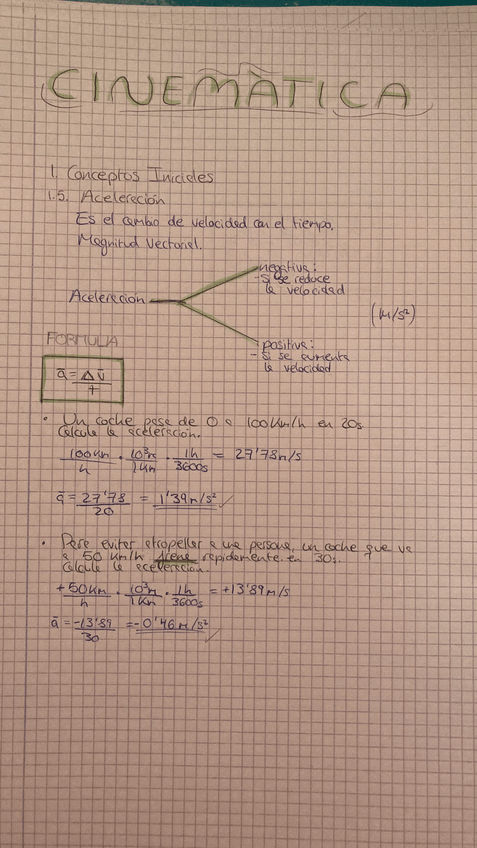 CINEMÀTICA
1. Conceptos Iniciales
1.5. Aceleración
Es el cambio de velocidad con el tiempo.
Magnitud Vectorial.
Aceleración
negativa:
- Si se reduce
la velocidad
(m/s²)
positiva:
- Si se aumenta
la velocidad
FORMULA
ā = Δv̄ / t
• Un coche pasa de 0 a 100 Km/h en 20s.
Calcula la aceleración.
100 Km / h · 10³m / 1 Km · 1h / 3600s = 27'78 m/s
ā = 27'78 / 20 = 1'39 m/s² ✓
• Para evitar atropellar a una persona, un coche que va
a 50 km/h frena rapidamente en 30s.
Calcula la aceleración.
+50 Km / h · 10³m / 1 Km · 1h / 3600s = +13'89 m/s
ā = -13'89 / 30 = -0'46 m/s² ✓